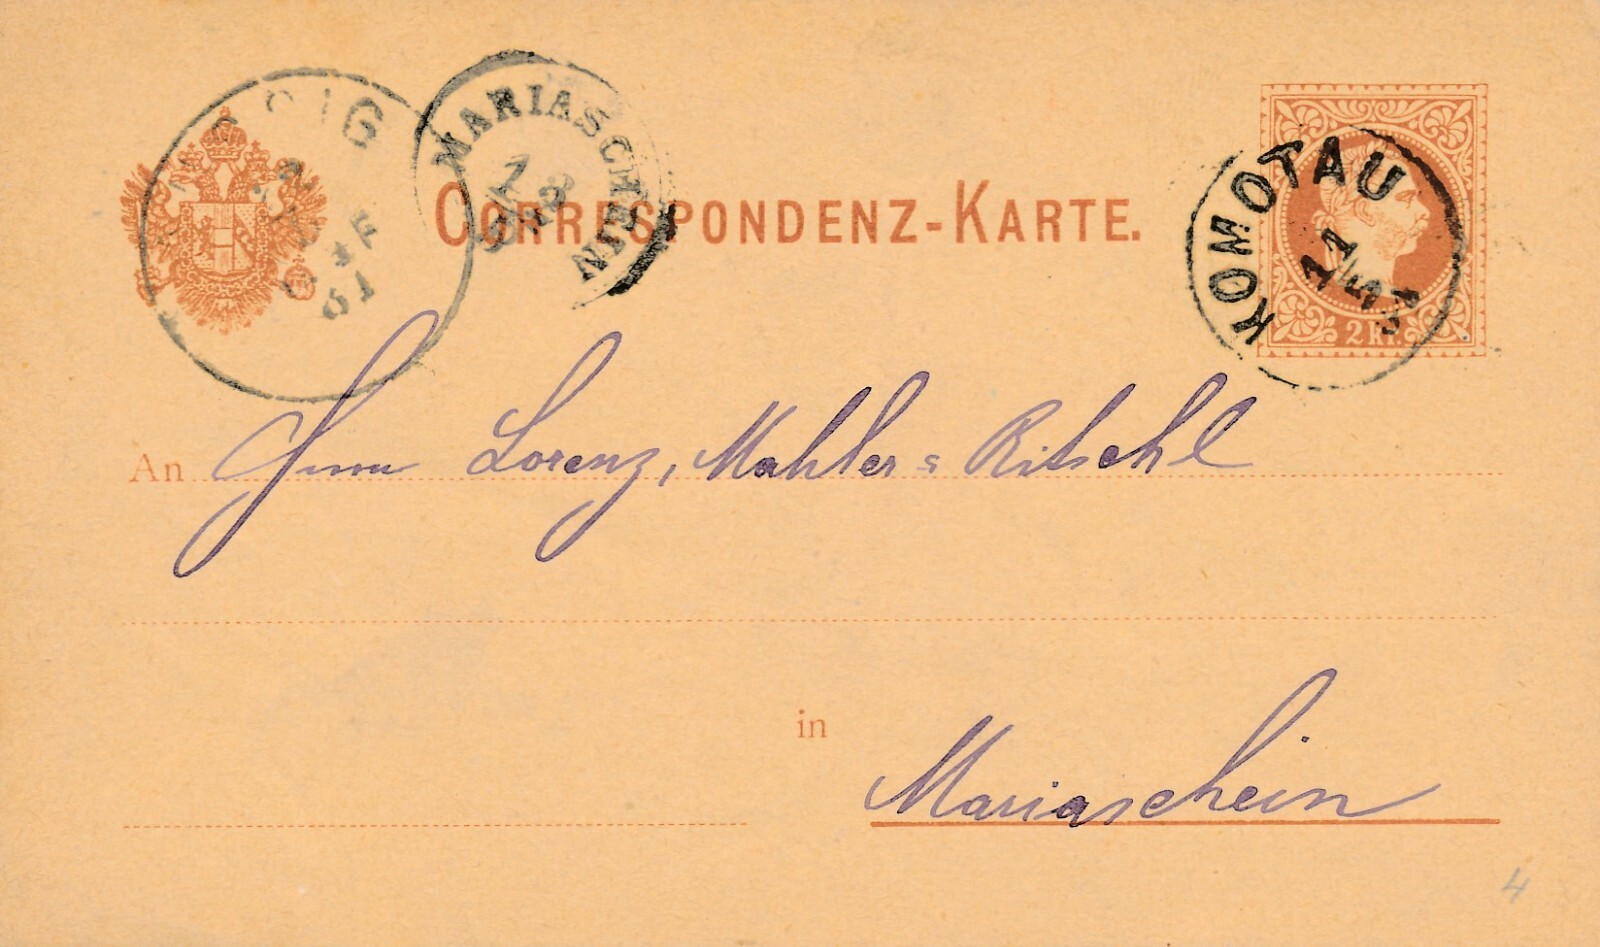 MARIASCHEIN
KOMOTAU
CORRESPONDENZ-KARTE.
2 kr.
An Herrn Lorenz, Mahler s Ritschl
in
Mariaschein
4